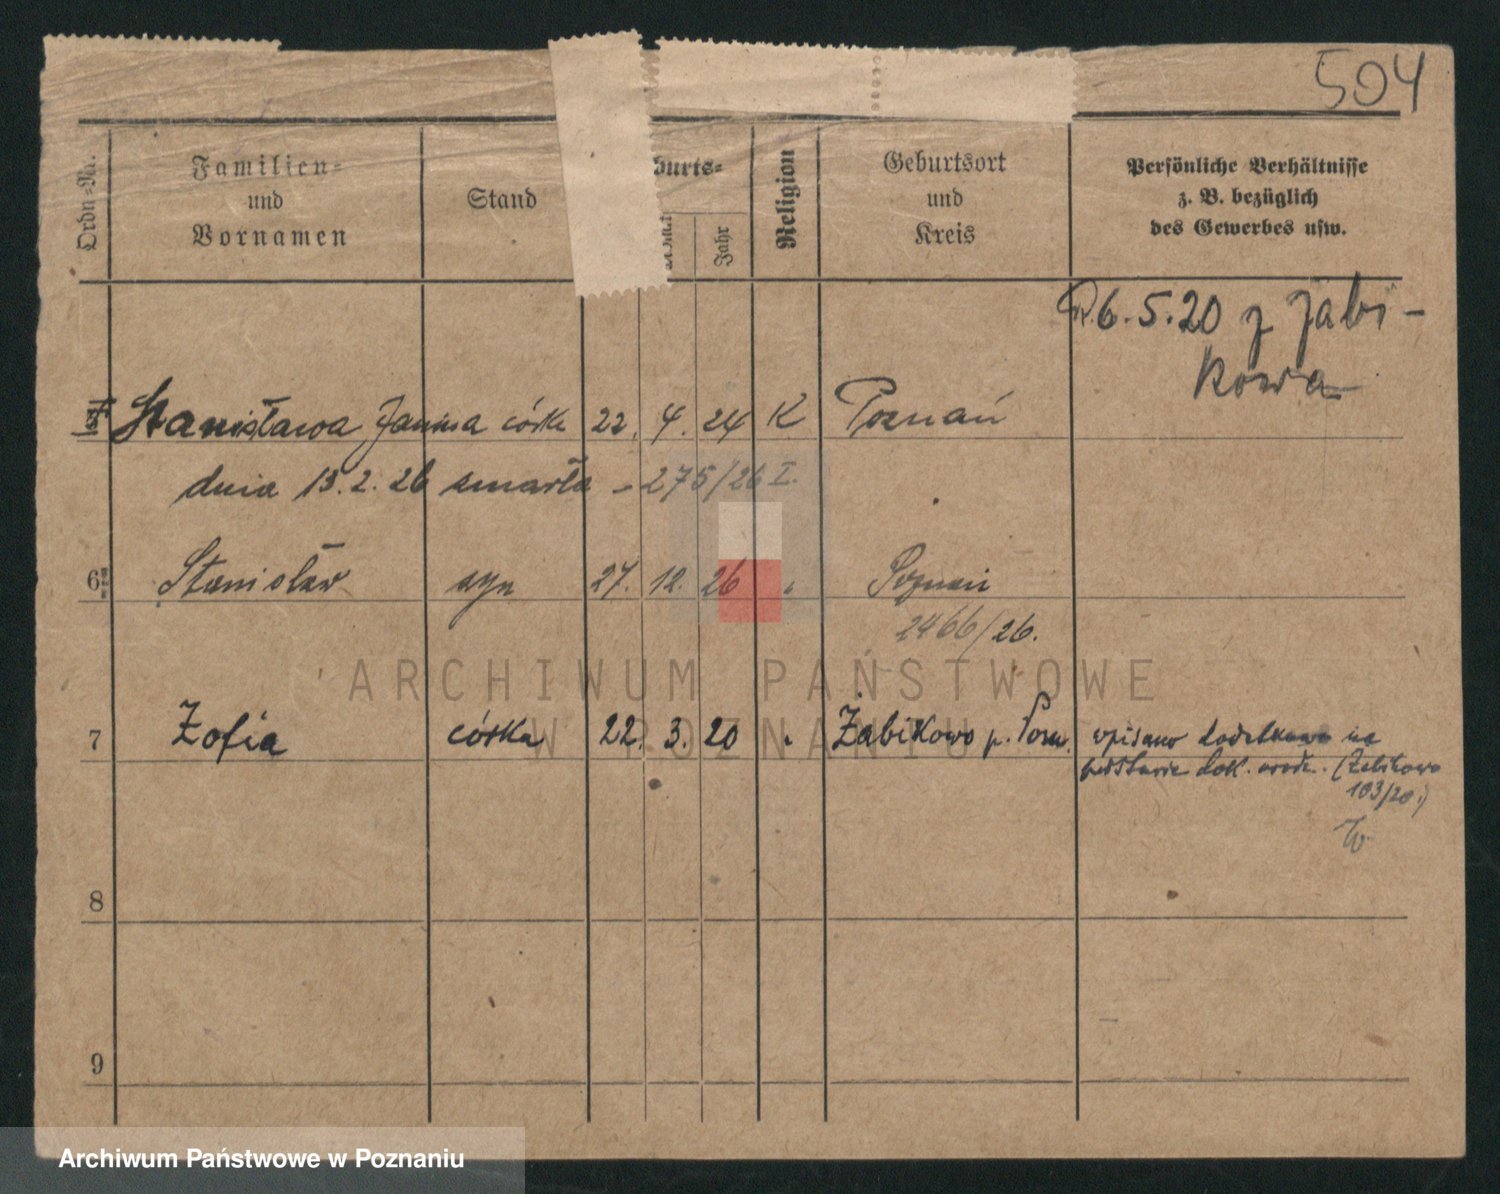 504
Ordn.-Nr.
Familien-
und
Vornamen
Stand
burts-
Jahr
Religion
Geburtsort
und
Kreis
Persönliche Verhältnisse
z. B. bezüglich
des Gewerbes usw.
6.5.20 z Żabi-
kowa
Stanisława Janina córka 22. 4. 24 K Poznań
dnia 13.2.26 zmarła - 275/26 I.
6 Stanisław syn 27. 12. 26 " Poznań
2466/26.
7 Zofia córka 22. 3. 20 " Żabikowo p. Pozn. wpisano dodatkowo na
podstawie dok. urodz. (Żabikowo
103/20.)
8
9
ARCHIWUM PAŃSTWOWE
W POZNANIU
Archiwum Państwowe w Poznaniu